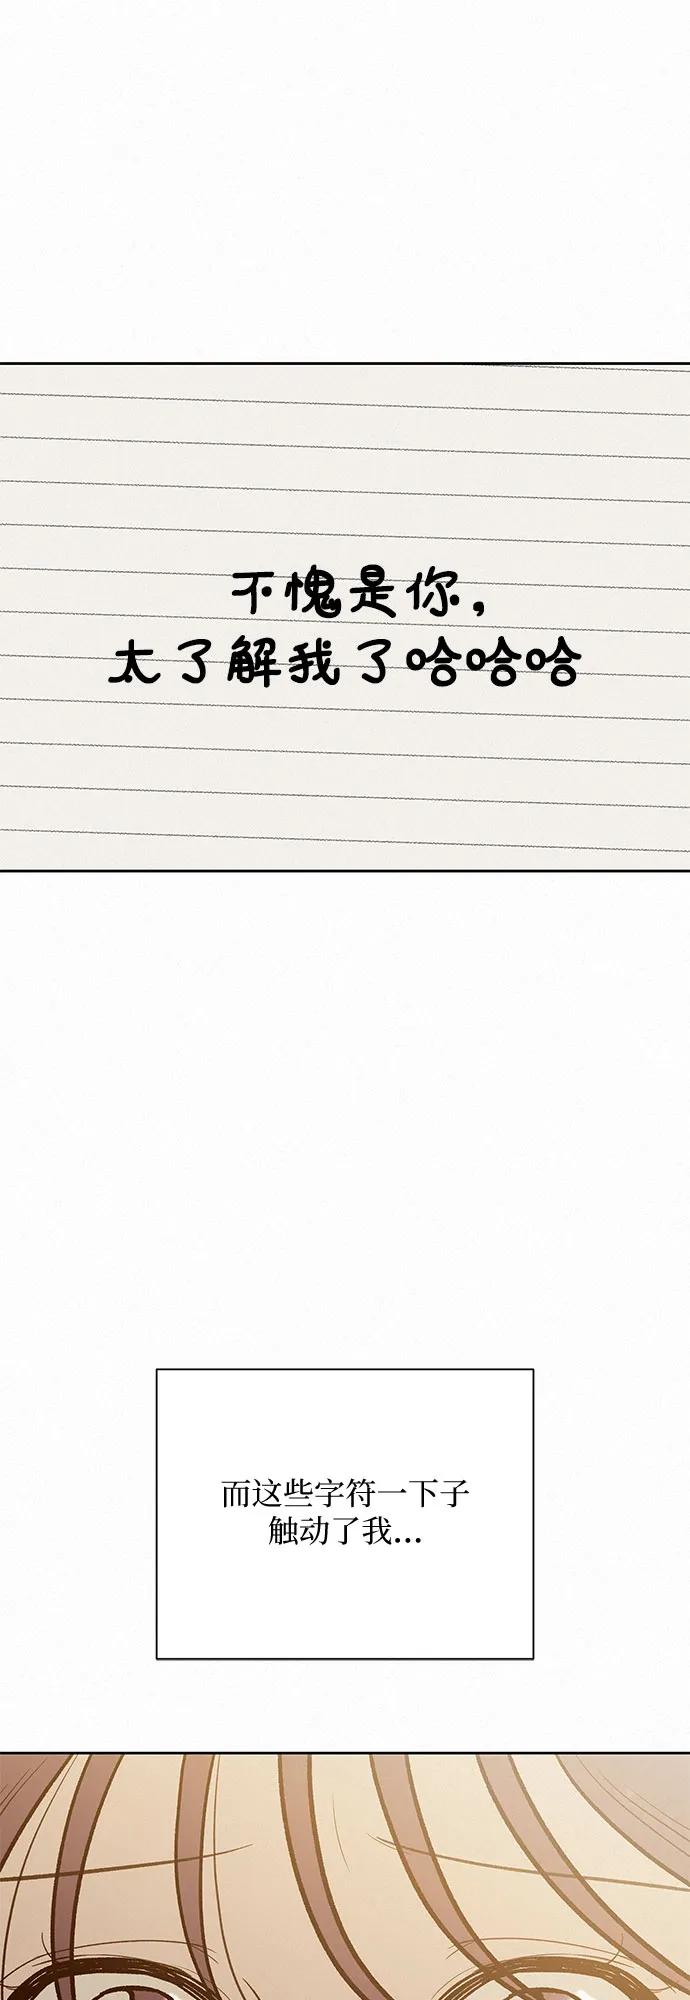 不愧是你，
太了解我了哈哈哈
而这些字符一下子
触动了我…